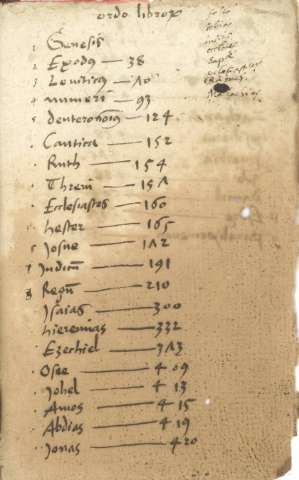 ordo libroꝝ
1 Genesis
2 Exodus — 38
3 Leuiticus — Λ0
4 numeri — 93
5 deuteronomiũ — 124
Cantica — 152
Ruth — 154
Threni — 15Λ
Ecclesiastes — 160
hester — 165
6 Josue — 1Λ2
7 Judicũ — 191
8 Regũ — 210
Jsaias — 300
hieremias — 332
Ezechiel — 3Λ3
Osee — 409
Johel — 413
Amos — 415
Abdias — 419
Jonas — 420